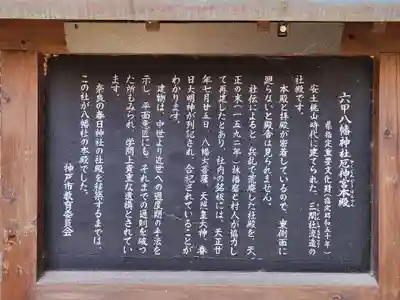 六甲八幡神社厄神宮本殿
県指定重要文化財(指定昭和五十年)
安土桃山時代に建てられた、三間社流造の
社殿です。
本殿と拝殿が密着しているので、東側面に
廻らないと殿舎は見られません。
社伝によると、兵乱で荒廃した社殿を、天
正の末(一五九二)林播磨と村人が協力し
て再建したとあり、社内の銘板には、天正廿
年七月廿五日、八幡大菩薩、天照皇大神、春
日大明神が列記され、合祀されていることが
わかります。
建物は、中世より近世への過渡期の手法を
示し、平面電匠にも、それまでの通則を破っ
た所もみられ、学問上貴重な遺構とされてい
ます。
奈良の春日神社の社殿を移築するまでは、
この社が八幡社の本殿でした。
神戸市教育委員会